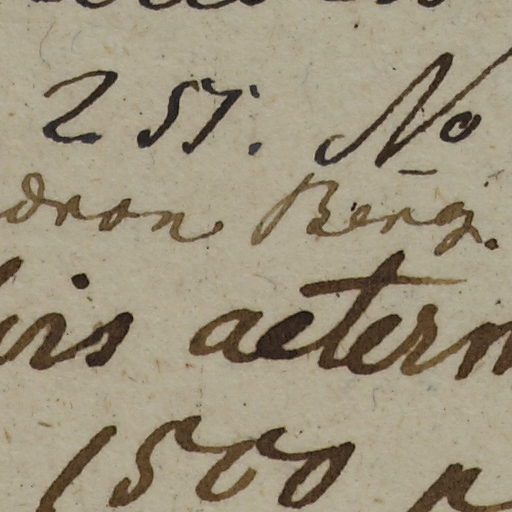 257. No
dron Berg.
is aetern
1500